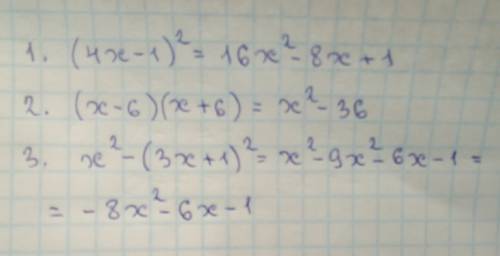 1. (4x-1)² = 16x² - 8x + 1
2. (x-6)(x+6) = x² - 36
3. x² - (3x+1)² = x² - 9x² - 6x - 1 =
= - 8x² - 6x - 1